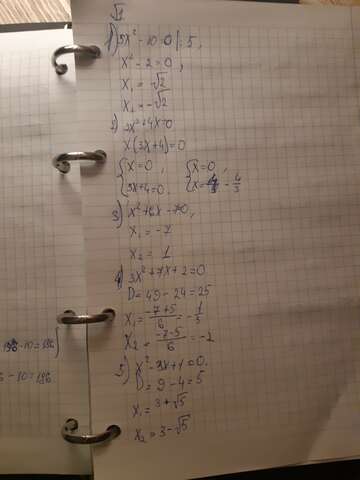 √1
1) 5x² - 10 = 0 |: 5,
x² - 2 = 0,
x₁ = √2
x₂ = -√2
2) 3x² + 4x = 0
x(3x + 4) = 0
{ x = 0, { x = 0,
3x + 4 = 0. x = - 4/3
3) x² + 6x - 7 = 0,
x₁ = -7
x₂ = 1
4) 3x² + 7x + 2 = 0
D = 49 - 24 = 25
x₁ = (-7+5)/6 = - 1/3
x₂ = (-7-5)/6 = -2
5) x² - 3x + 1 = 0.
D = 9 - 4 = 5
x₁ = 3 + √5
x₂ = 3 - √5
- 10 = 196
- 10 = 196